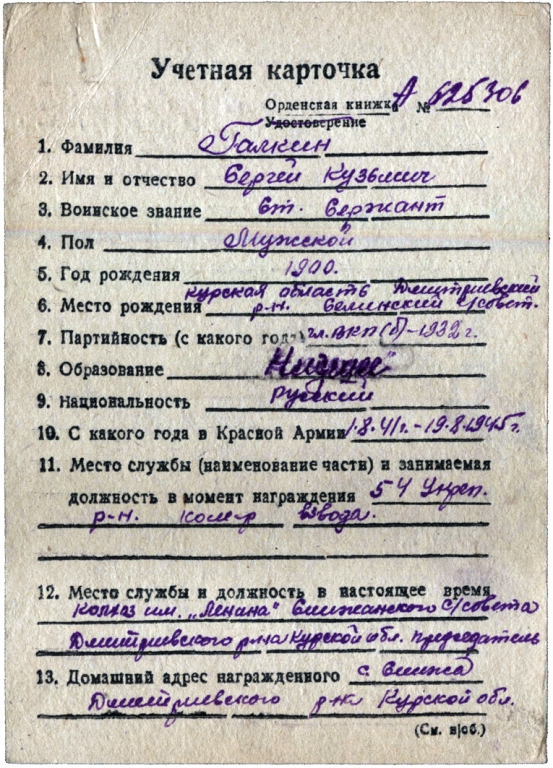 Учетная карточка
Орденская книжка А № 625306
Удостоверение
1. Фамилия Галкин
2. Имя и отчество Сергей Кузьмич
3. Воинское звание Ст. Сержант
4. Пол Мужской
5. Год рождения 1900.
Курская область Дмитриевский
6. Место рождения р-н. Селинский с/совет.
7. Партийность (с какого года) чл. ВКП(б)-1932 г.
8. Образование Низшее
9. Национальность Русский
10. С какого года в Красной Армии 1.8.41г.-19.8.1945г.
11. Место службы (наименование части) и занимаемая
должность в момент награждения 54 Укреп.
р-н. ком-р взвода.
12. Место службы и должность в настоящее время
Колхоз им. „Ленина" с/совета
Дмитриевского р-на Курской обл. председатель
13. Домашний адрес награжденного с.
Дмитриевского р-на Курской обл.
(См. н/об.)